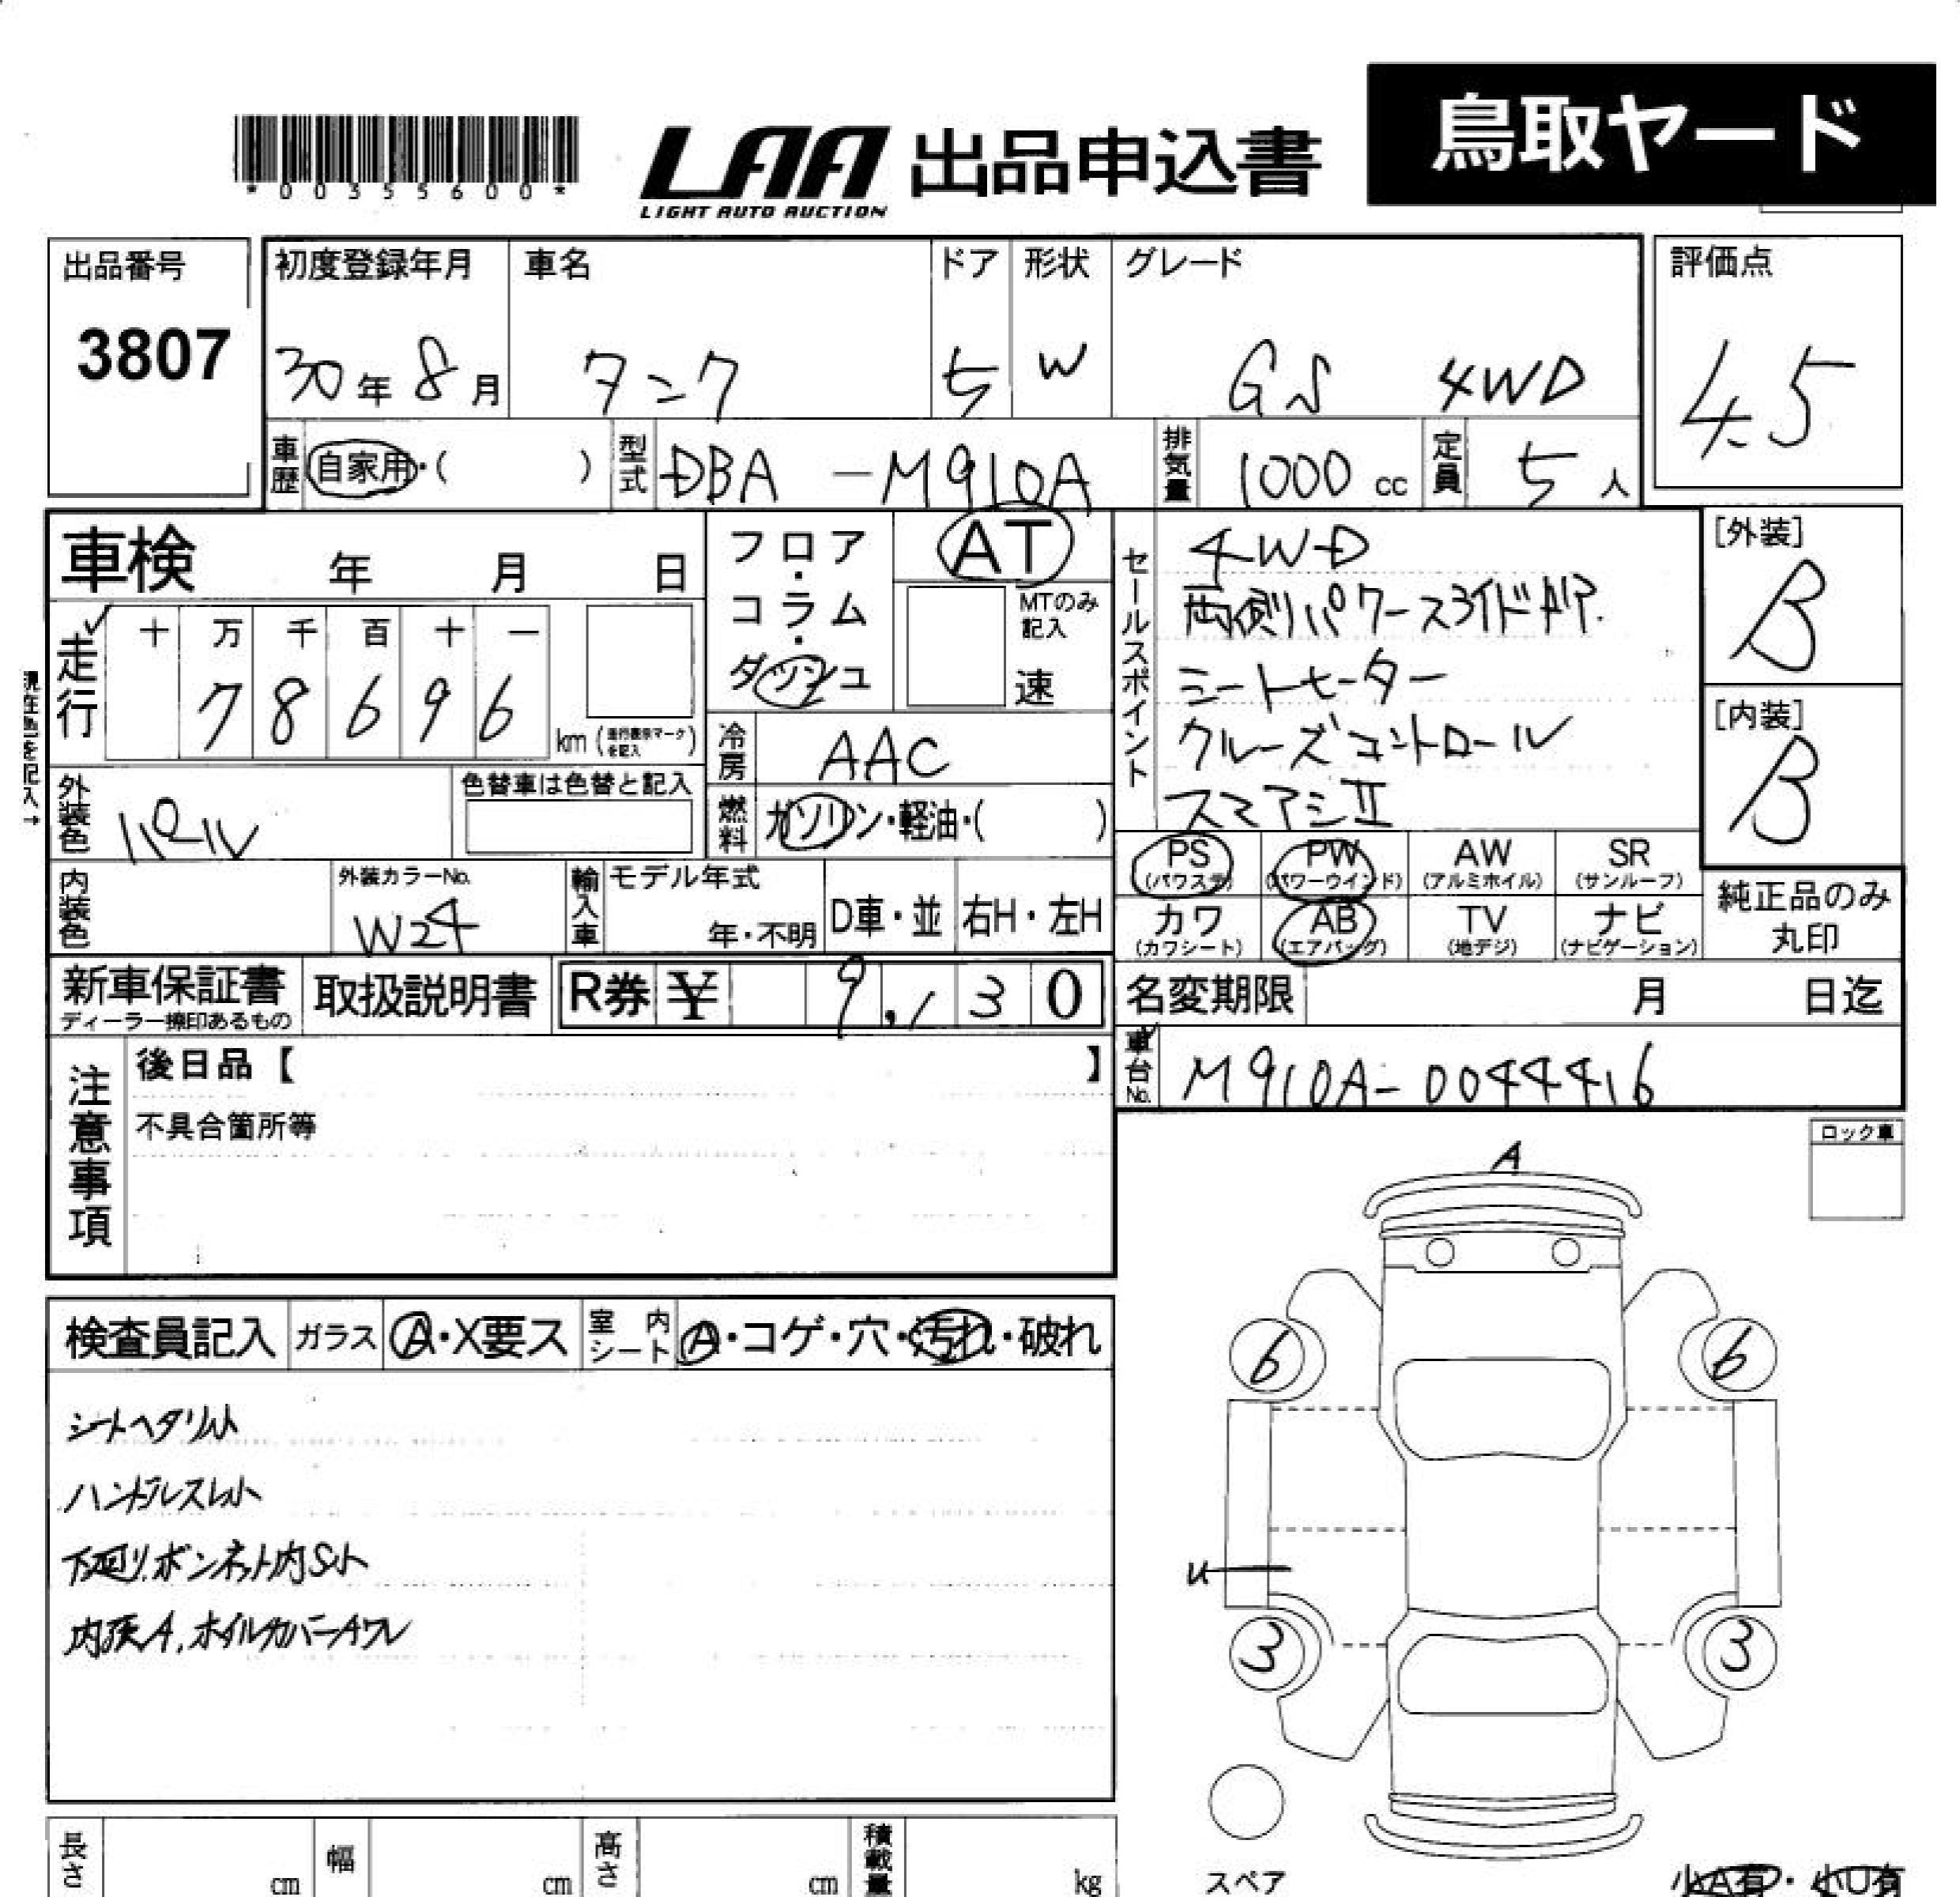 鳥取ヤード
*00355600*
LAA 出品申込書
LIGHT AUTO AUCTION
出品番号 初度登録年月 車名 ドア 形状 グレード 評価点
3807 30年8月 タンク 5 W GS 4WD 4.5
車歴 自家用・( ) 型式 DBA -M910A 排気量 1000 cc 定員 5人
車検 年 月 日 フロア・コラム・ダッシュ AT
MTのみ記入 速
セールスポイント
4WD
両側パワースライドドア.
シートヒーター
クルーズコントロール
スマアシⅡ
[外装]
B
[内装]
B
走行 十 万 千 百 十 一
7 8 6 9 6 km (走行表示マークを記入)
現在色を記入→
冷房 AAC
外装色 パール 色替車は色替と記入
燃料 ガソリン・軽油・( )
PS (パワステ) PW (パワーウインド) AW (アルミホイル) SR (サンルーフ)
内装色 外装カラーNo. W24 輸入車 モデル年式 年・不明 D車・並 右H・左H
カワ (カワシート) AB (エアバッグ) TV (地デジ) ナビ (ナビゲーション) 純正品のみ丸印
新車保証書 取扱説明書 R券 ¥ 9,130 名変期限 月 日迄
ディーラー捺印あるもの
車台No. M910A-0044416
注意事項 後日品【 】
不具合箇所等
ロック車
A
検査員記入 ガラス A・X要ス 室内シート A・コゲ・穴・汚れ・破れ
6 6
シートヘタリ小
ハンドルスレ小
下廻り.ボンネット内S小
U
内張A.ホイルカバーAワレ
3 3
長さ cm 幅 cm 高さ cm 積載量 kg スペア 小A有・小U有